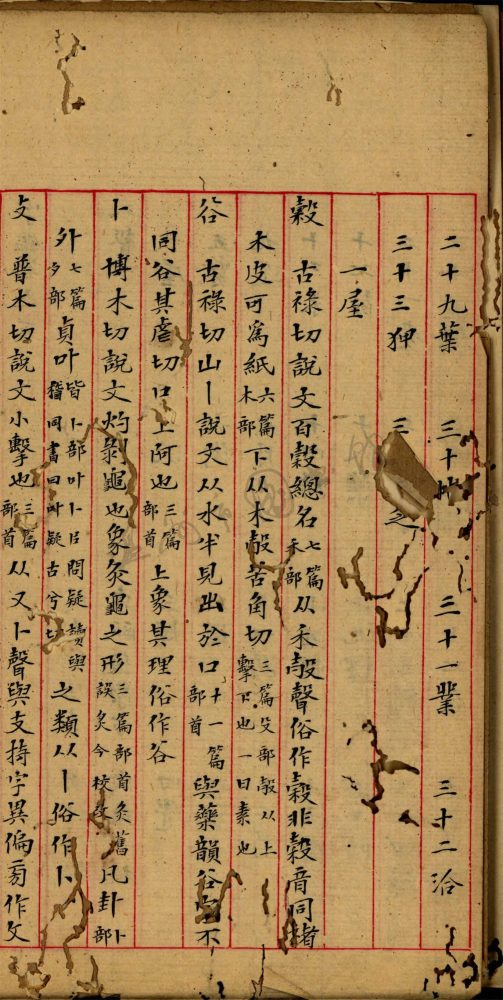 二十九葉　三十　三十一業　三十二洽
三十三狎　三　之
一屋
穀　古祿切說文百穀總名七篇禾部从禾𣪊聲俗作穀非榖音同楮
木皮可爲紙六篇木部下从木𣪊苦角切三篇殳部𣪊从上擊下也一曰素也
谷　古祿切山丨說文从水半見出於口十一篇部首與藥韻谷字不
同谷其虐切口上阿也三篇部首上象其理俗作谷
卜　博木切說文灼剝龜也象灸龜之形三篇部首灸舊誤炙今校凡卦卜部
外七篇夕部貞卟皆卜部卟卜㠯問疑讀與稽同書曰卟疑古兮切之類从丨俗作卜
攴　普木切說文小擊也三篇部首从又卜聲與支持字異偏旁作攵